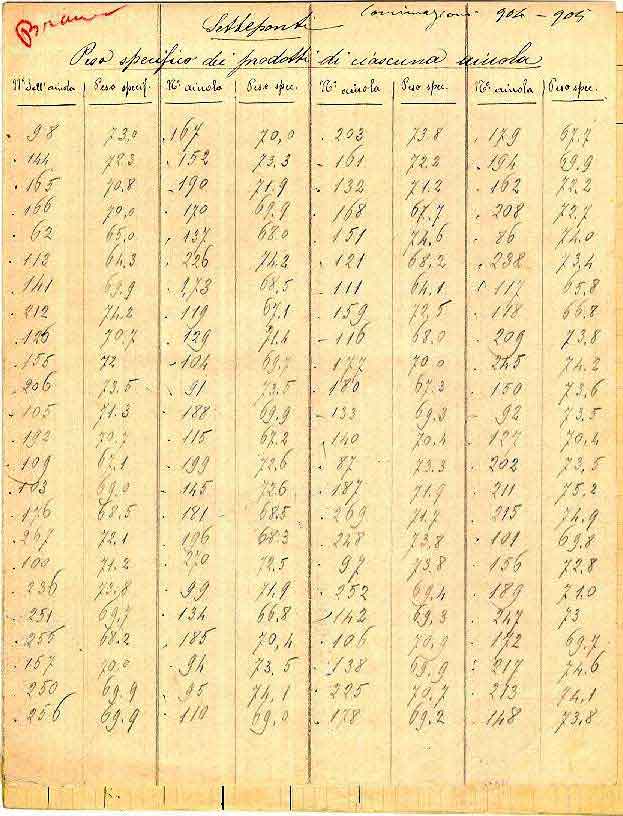 Setteponti 904-905
Peso specifico dei prodotti di ciascuna aiuola
N° dell'aiuola Peso specif. N° aiuola Peso spec. N° aiuola Peso spec. N° aiuola Peso spec.
98 73,0 167 70,0 203 73.8 179 67.7
144 72.3 152 73.3 161 72.2 194 69.9
165 70.8 190 71.9 132 71.2 162 72.2
166 70,0 170 69.9 168 67.7 208 72.7
62 65,0 137 68.0 151 74,6 86 74.0
113 64.3 226 74.2 121 68,2 238 73,4
141 69.9 173 68.5 111 64.1 117 65.8
212 74.2 119 67.1 159 72,5 118 66.8
126 70.7 129 71.4 116 68.0 209 73.8
155 72 104 69.7 177 70.0 245 74.2
206 73.5 91 73.5 180 67.3 150 73,6
105 71.3 188 69.9 133 69.3 92 73.5
192 70.7 115 67.2 140 70.4 127 70.4
109 67.1 199 72.6 87 73.3 202 73.5
103 69.0 145 72.6 187 71.9 211 75.2
176 68.5 181 68.5 269 71.7 215 74.9
267 72.1 196 68.3 248 73.8 101 69.8
100 71.2 270 72.5 97 73.8 156 72.8
236 73.8 99 71.9 252 69.4 189 71.0
251 69,7 134 66.8 142 69.3 247 73
255 68.2 185 70,4 106 70.9 172 69.7
157 70.0 94 73.5 138 65.9 217 74.6
250 69.9 95 74,1 225 70.7 213 74,1
256 69.9 110 69,0 178 69.2 148 73.8